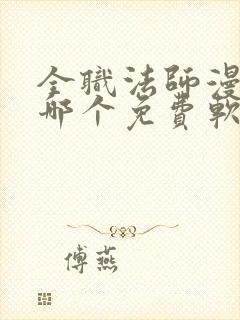 全職法師漫
哪个免費軟
傅燕